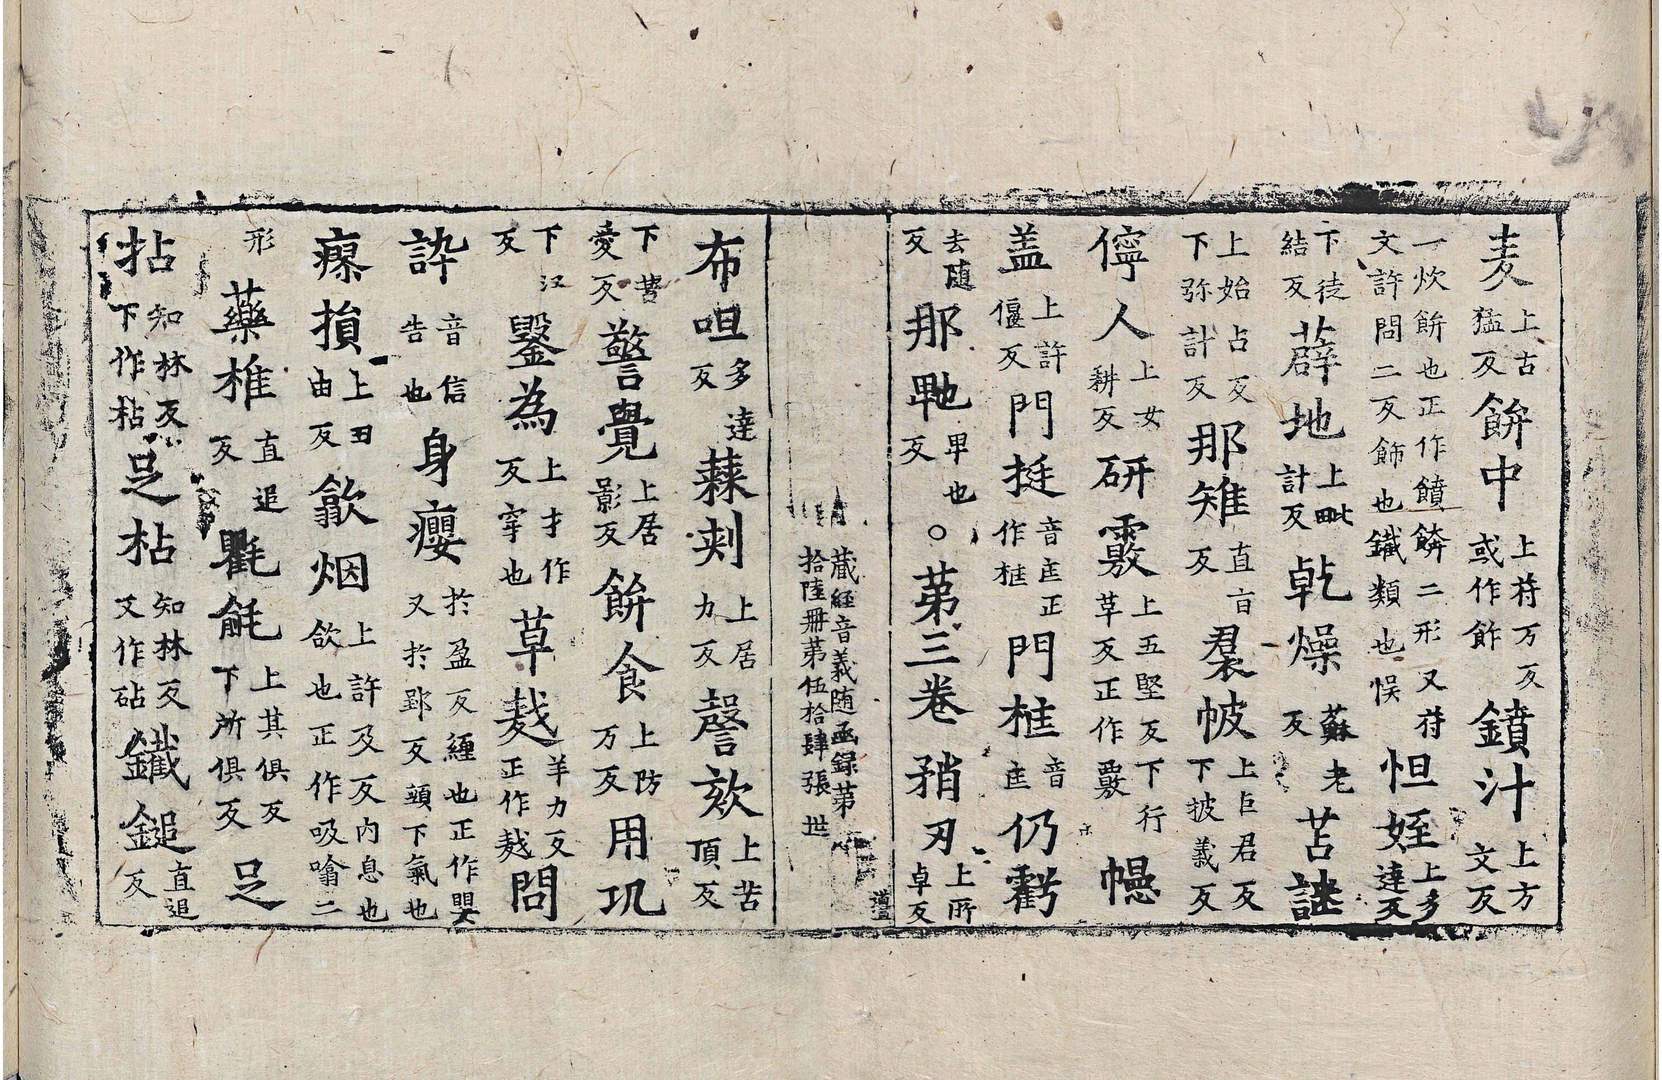 麦上古猛反餅中上苻万反或作飰鐼汁上方文反
一炊餅也正作饙餴二形又苻文許問二反餙也鐵類也悮怛姪上多達反
下徒結反薜地上毗計反乹燥蘇老反苫謎
上始占反下弥計反那雉直盲反裠帔上巨君反下披義反
儜人上女耕反研覈上五堅反下行草反正作覈幰
盖上許偃反門挺音㽵正作㭗門框音㽵仍虧
去随反那毑卑也反○第三卷矟刃上所卓反
藏経音義随函録第拾陸冊第伍拾肆張世
布呾多達反蕀刺上居力反謦欬上苦頂反
下苦愛反警覺上居影反餅食上防万反用巩
下江反鑿為上才作反穿也草䴬羊力反正作䴬問
訙音信告也身癭於盈反緾也正作嬰又於郢反頸下氣也
瘝損上田由反歙烟上許及反内息也歛也正作吸噏二
形藥椎直追反氍毹上其俱反下所俱反足
拈知林反下作枮足枯知林反又作砧鐵鎚直追反